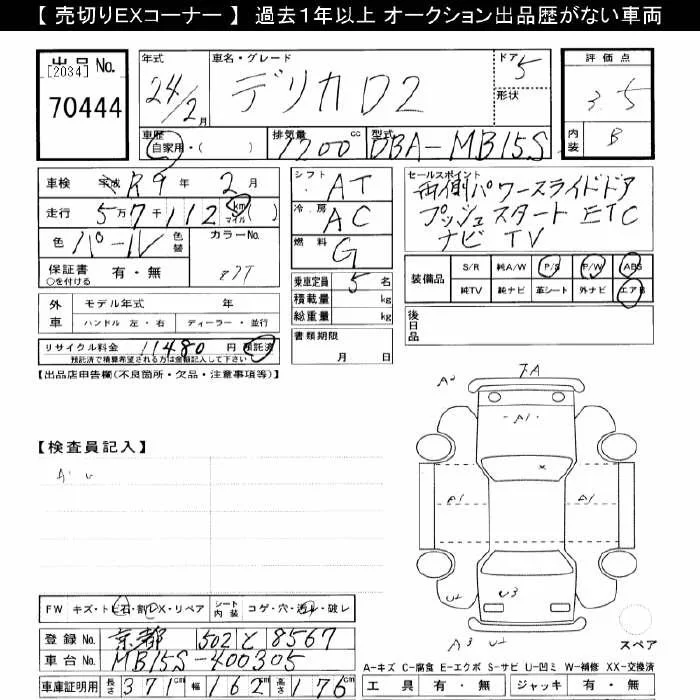 【 売切りEXコーナー 】 過去1年以上 オークション出品歴がない車両
出品 No.
[2034]
70444
年式
24/2月
車名・グレード
デリカD2
ドア
5
形状
評価点
3.5
内装
B
車歴
自家用・( )
排気量
1200 cc
型式
DBA-MB15S
車検 平成 R9 年 2 月
走行 5万7千112 km マイル ( )
色 パール 色替
カラーNo.
Z7T
保証書 有・無
○を付ける
外車
モデル年式 年
ハンドル 左・右 ディーラー・並行
リサイクル料金 11480 円 預託済
預託済で積算希望される方は金額記入して下さい
シフト AT
冷房 AC
燃料 G
乗車定員 5 名
積載量 kg
総重量 kg
書類期限
月 日
セールスポイント
両側パワースライドドア
プッシュスタート ETC
ナビ TV
装備品 S/R 純A/W P/S P/W ABS
純TV 純ナビ 革シート 外ナビ エアB
後日品
【出品店申告欄(不良箇所・欠品・注意事項等)】
【検査員記入】
A1 U
A2
FA
A1
×
A1
A1
U2
U3
A3 U2
スペア
FW キズ・トビ石・割・X・リペア シート内装 コゲ・穴・汚レ・破レ
登録 No. 京都 502 と 8567
車台 No. MB15S-400305
車庫証明用 長さ 371 cm 幅 162 cm 高さ 176 cm
A-キズ C-腐食 E-エクボ S-サビ U-凹ミ W-補修 XX-交換済
工具 有・無 ジャッキ 有・無